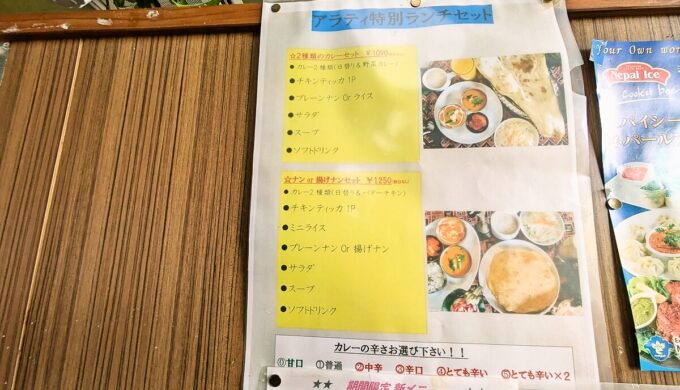 アラティ特別ランチセット
☆2種類のカレーセット ￥1090
● カレー2 種類(日替り＆野菜カレー)
●チキンティッカ 1P
●プレーンナン Or ライス
●サラダ
●スープ
●ソフトドリンク
☆ナン or 揚げナンセット ￥1250
● カレー2 種類(日替り＆バターチキン)
●チキンティッカ 1P
●ミニライス
●プレーンナン Or 揚げナン
●サラダ
●スープ
●ソフトドリンク
カレーの辛さお選び下さい！！
⓪甘口 ①普通 ②中辛 ③辛口 ④とても辛い ⑤とても辛い×2
★★ 期間限定 新メニ
Your Own wor
Nepal Ice
Coolest bee